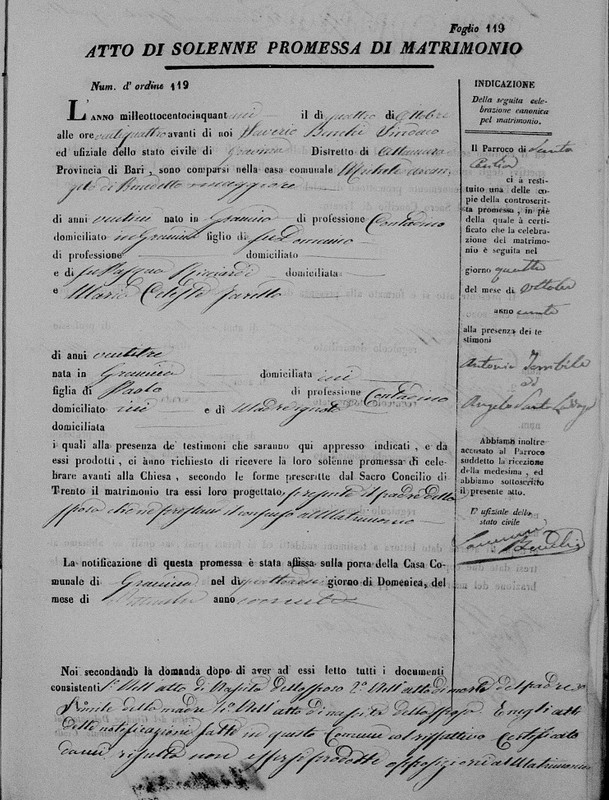 Foglio 119
ATTO DI SOLENNE PROMESSA DI MATRIMONIO
Num. d'ordine 119
L'ANNO milleottocentocinquant il dì quattro di Ottobre
alle ore ventiquattro avanti di noi Sindaco
ed ufiziale dello stato civile di Gravina Distretto di Altamura
Provincia di Bari, sono comparsi nella casa comunale Michele
di Benedetto maggiore
di anni nato in Gravina di professione Contadino
domiciliato in Gravina figlio di fu Domenico
di professione domiciliato
e di fu Pasqua Ricciardi domiciliata
e Maria Celeste
di anni ventitre
nata in Gravina domiciliata ivi
figlia di Paolo di professione Contadino
domiciliato ivi e di Madre ignota
domiciliata
i quali alla presenza de' testimoni che saranno quì appresso indicati, e da
essi prodotti, ci ànno richiesto di ricevere la loro solenne promessa di cele-
brare avanti alla Chiesa, secondo le forme prescritte dal Sacro Concilio di
Trento il matrimonio tra essi loro progettato, presente il padre della
sposa che ne prestano il consenso al Matrimonio
La notificazione di questa promessa è stata affissa sulla porta della Casa Co-
munale di Gravina nel dì giorno di Domenica, del
mese di anno corrente
Noi secondando la domanda dopo di aver ad essi letto tutti i documenti
consistenti 1° Nell'atto di Nascita dello sposo 2° Nell'atto di morte del padre
Simile della madre Nell'atto di nascita della sposa E negli atti
delle notificazioni fatte in questo Comune col rispettivo Certificato
da cui risulta non essersi prodotte opposizioni al Matrimonio
INDICAZIONE
Della seguita cele-
brazione canonica
pel matrimonio.
Il Parroco di Santa
Lucia
ci à resti-
tuito una delle co-
pie della controscrit-
ta promessa, in piè
della quale à certi-
ficato che la celebra-
zione del matrimo-
nio è seguita nel
giorno quattro
del mese di Ottobre
anno corrente
alla presenza dei te
stimoni
Antonio Terribile
ed
Angelo Santo
Abbiamo inoltre
accusato al Parroco
suddetto la ricezione
della medesima, ed
abbiamo sottoscritto
il presente atto.
L' ufiziale dello
stato civile